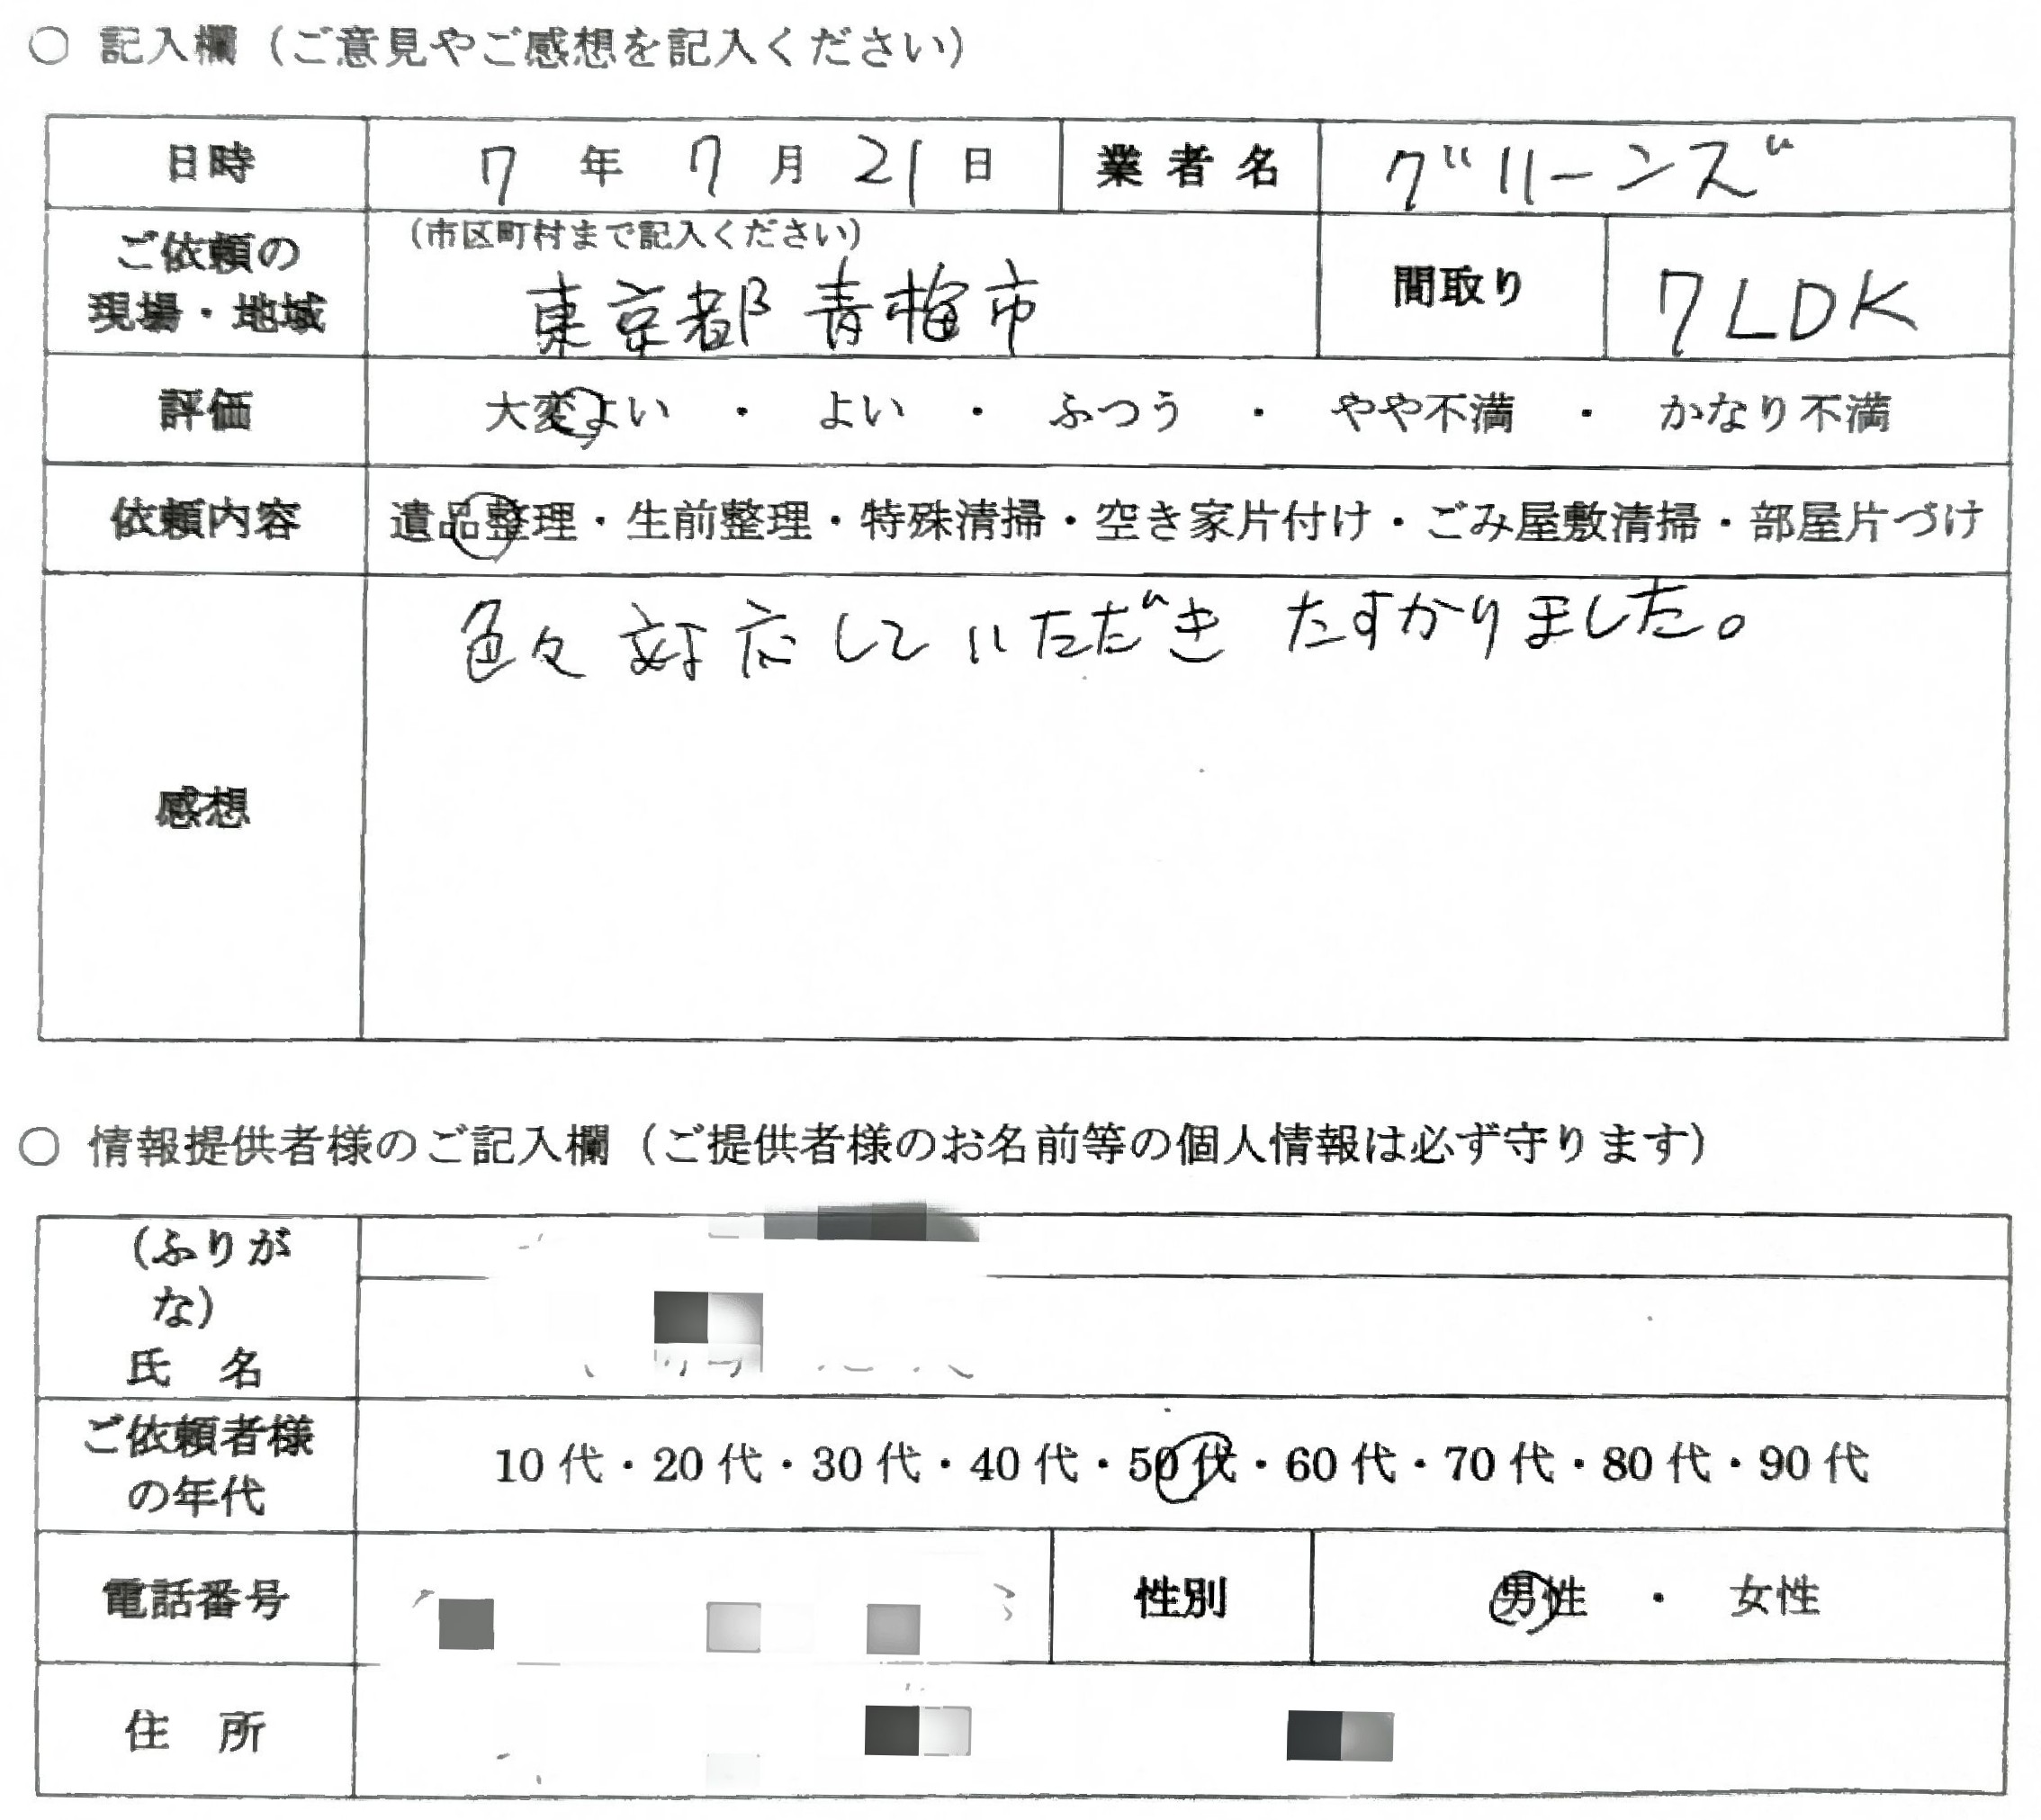 ○ 記入欄（ご意見やご感想を記入ください）
日時 7 年 7 月 21 日 業者名 グリーンズ
ご依頼の現場・地域 （市区町村まで記入ください） 東京都青梅市 間取り 7LDK
評価 大変よい ・ よい ・ ふつう ・ やや不満 ・ かなり不満
依頼内容 遺品整理・生前整理・特殊清掃・空き家片付け・ごみ屋敷清掃・部屋片づけ
感想 色々対応していただき たすかりました。
○ 情報提供者様のご記入欄（ご提供者様のお名前等の個人情報は必ず守ります）
（ふりがな）
氏 名
ご依頼者様の年代 10代・20代・30代・40代・50代・60代・70代・80代・90代
電話番号 性別 男性 ・ 女性
住 所